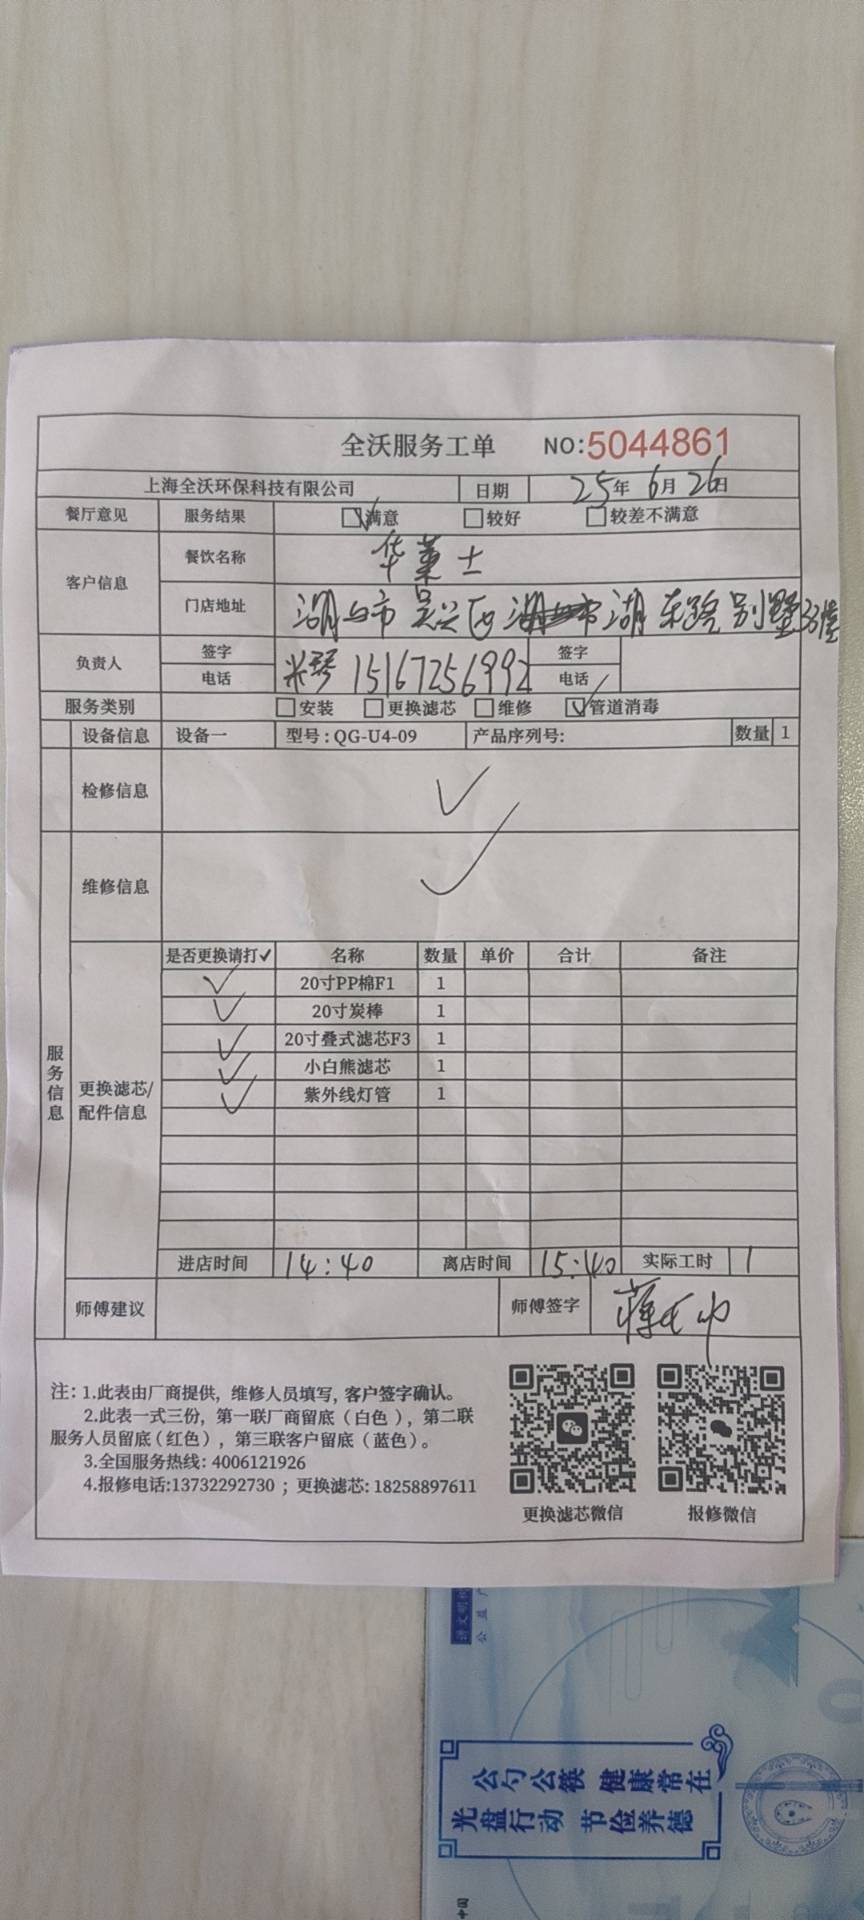 全沃服务工单 NO:5044861
上海全沃环保科技有限公司 日期 25年6月26日
餐厅意见 服务结果 满意 较好 较差不满意
客户信息 餐饮名称 华莱士
门店地址 湖州市吴兴区湖东路别墅33幢
负责人 签字 签字
电话 15167256992 电话
服务类别 安装 更换滤芯 维修 ✓管道消毒
设备信息 设备一 型号:QG-U4-09 产品序列号: 数量 1
检修信息 ✓
维修信息 ✓
服务信息
更换滤芯/配件信息
是否更换请打✓ 名称 数量 单价 合计 备注
✓ 20寸PP棉F1 1
✓ 20寸炭棒 1
✓ 20寸叠式滤芯F3 1
✓ 小白熊滤芯 1
✓ 紫外线灯管 1
进店时间 14:40 离店时间 15:40 实际工时 1
师傅建议 师傅签字
注:1.此表由厂商提供,维修人员填写,客户签字确认。
2.此表一式三份,第一联厂商留底(白色),第二联
服务人员留底(红色),第三联客户留底(蓝色)。
3.全国服务热线:4006121926
4.报修电话:13732292730;更换滤芯:18258897611
更换滤芯微信 报修微信
公勺公筷 健康常在
光盘行动 节俭养德